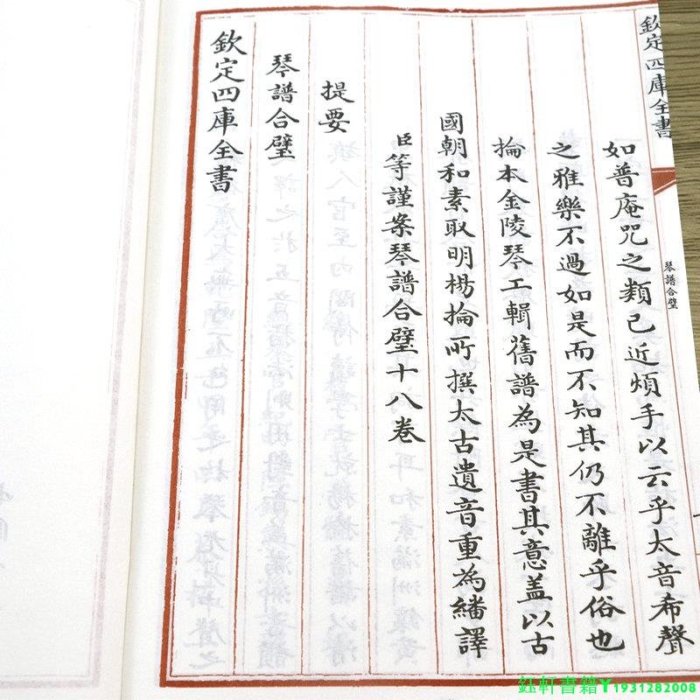 欽定四庫全書
琴譜合璧
提要
臣等謹案琴譜合璧十八卷
國朝和素取明楊掄所撰太古遺音重為繙譯
掄本金陵琴工輯舊譜為是書其意蓋以古
之雅樂不過如是而不知其仍不離乎俗也
如普庵咒之類已近煩手以云乎太音希聲
欽定四庫全書
琴譜合璧
鈺軒書籍¥1931282008